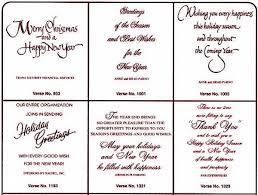 Merry Christmas
and a
Happy New Year
TRANS SECURITY FINANCIAL SERVICES
Verse No. 803
Greetings
of the Season
and Best Wishes
for the
New Year
ANNE AND BRAD PARINO
Verse No. 1006
Wishing you every happiness
this holiday season
and throughout
the Coming
Year
ANNE AND BRAD PARINO
Verse No. 1001
OUR ENTIRE ORGANIZATION
JOINS IN SENDING
Holiday
Greetings
WITH EVERY GOOD WISH
FOR THE NEW YEAR
Verse No. 1193
THE YEAR END BRINGS
NO GREATER PLEASURE THAN THE
OPPORTUNITY TO EXPRESS TO YOU
SEASON'S GREETINGS AND GOOD WISHES
May your holidays
and New Year
be filled with
happiness
Verse No. 1021
There is no time
more fitting to say
"Thank You"
and to wish you a
Happy Holiday Season
and a New Year
of health, happiness
and prosperity
Verse No. 1323